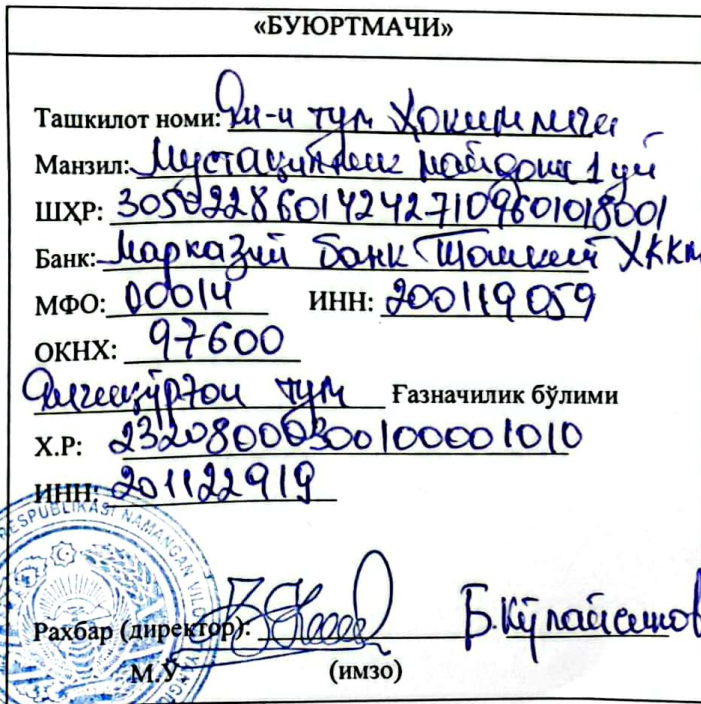 «БУЮРТМАЧИ»
Ташкилот номи: Ян-и тум Ҳокимлиги
Манзил: Мустақиллик майдони 1 уй
ШҲР: 305022860142427109601018001
Банк: Марказий банк Тошкент ХККМ
МФО: 00014 ИНН: 200119059
ОКНХ: 97600
Янгиқўрғон тум Ғазначилик бўлими
Х.Р: 23208000300100001010
ИНН: 201122919
RESPUBLIKASI NAMANGAN VIL
Рахбар (директор): Б.Кўлайсинов
М.Ў (имзо)